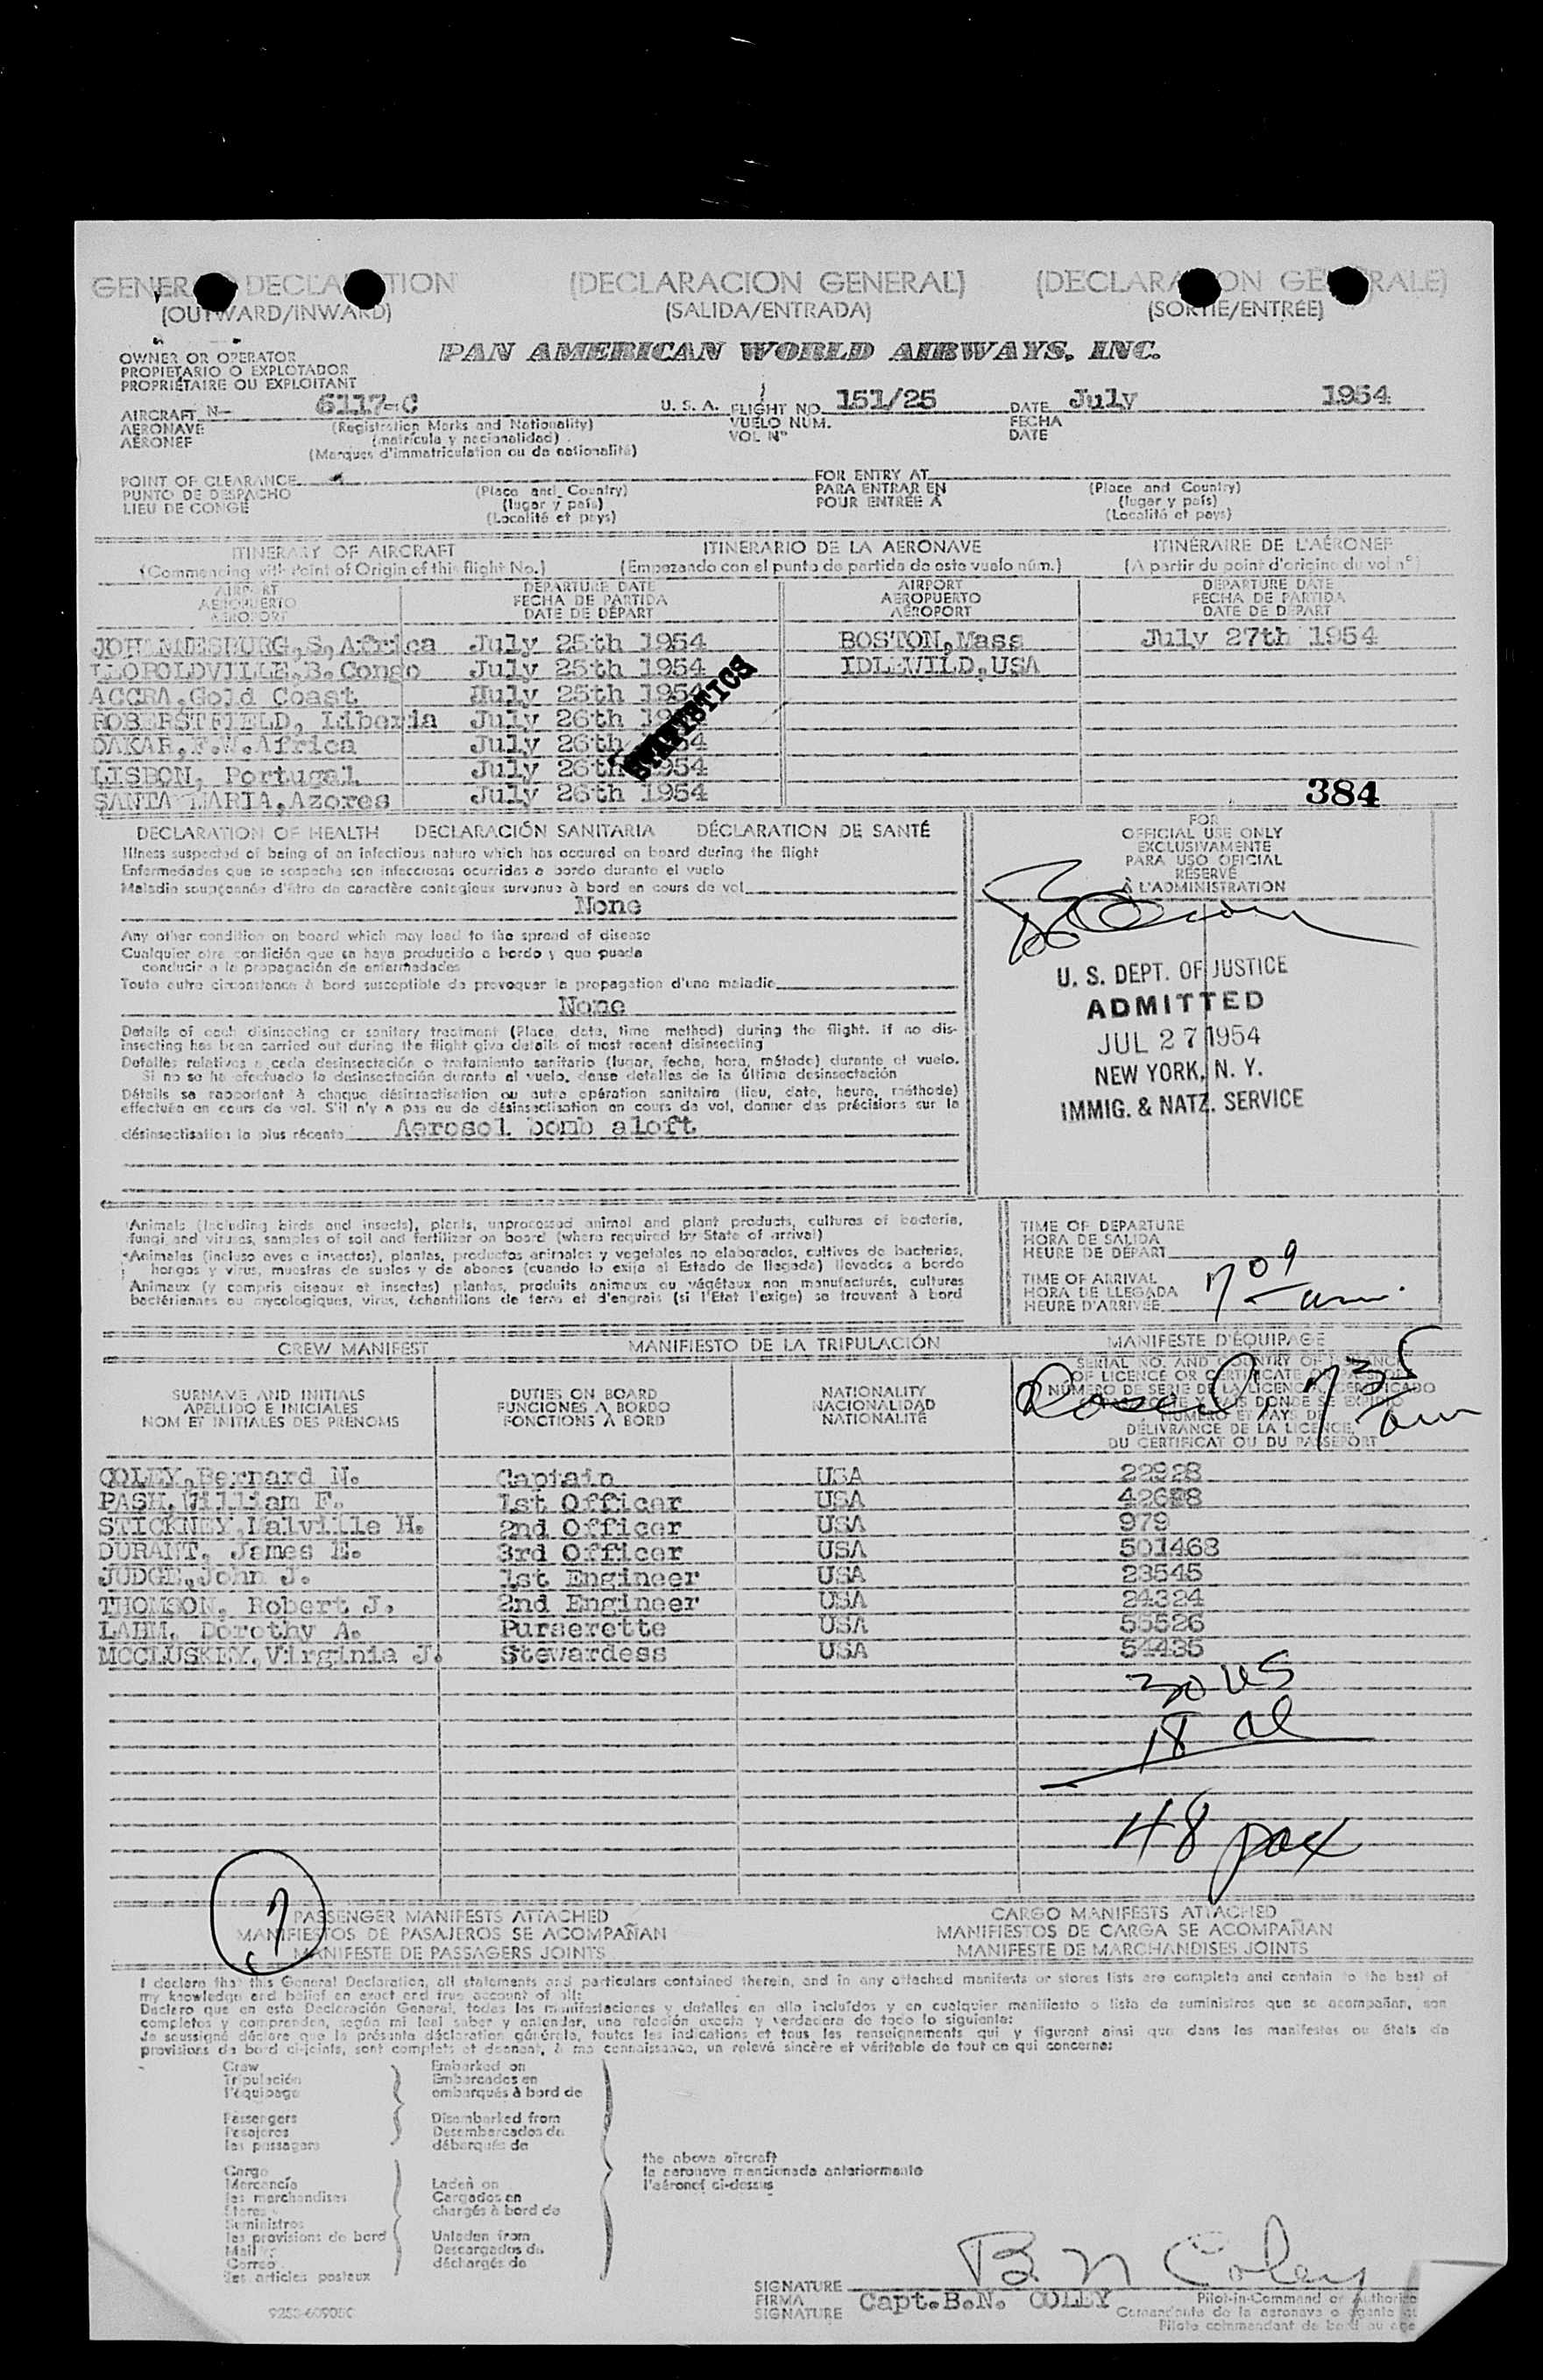 GENERAL DECLARATION (DECLARACION GENERAL) (DECLARATION GENERALE)
(OUTWARD/INWARD) (SALIDA/ENTRADA) (SORTIE/ENTRÉE)
OWNER OR OPERATOR
PROPIETARIO O EXPLOTADOR
PROPRIÉTAIRE OU EXPLOITANT
PAN AMERICAN WORLD AIRWAYS, INC.
AIRCRAFT N— 6117-C U. S. A. FLIGHT NO. 151/25 DATE July 1954
AERONAVE (Registration Marks and Nationality) VUELO NUM. FECHA
AÉRONEF (matrícula y nacionalidad) VOL Nº DATE
(Marques d'immatriculation ou de nationalité)
POINT OF CLEARANCE FOR ENTRY AT
PUNTO DE DESPACHO (Place and Country) PARA ENTRAR EN (Place and Country)
LIEU DE CONGÉ (lugar y país) POUR ENTRÉE A (lugar y país)
(Localité et pays) (Localité et pays)
ITINERARY OF AIRCRAFT ITINERARIO DE LA AERONAVE ITINÉRAIRE DE L'AÉRONEF
(Commencing with Point of Origin of this flight No.) (Empezando con el punto de partida de este vuelo núm.) (A partir du point d'origine du vol nº)
AIRPORT DEPARTURE DATE AIRPORT DEPARTURE DATE
AEROPUERTO FECHA DE PARTIDA AEROPUERTO FECHA DE PARTIDA
AÉROPORT DATE DE DÉPART AÉROPORT DATE DE DÉPART
JOHANNESBURG,S,Africa July 25th 1954 BOSTON,Mass July 27th 1954
LLOPOLDVILLE,B.Congo July 25th 1954 IDLEWILD,USA
ACCRA,Gold Coast July 25th 1954
ROBERSTFIELD, Liberia July 26th 1954
DAKAR,F.W.Africa July 26th 1954
LISBON, Portugal July 26th 1954
SANTA MARIA,Azores July 26th 1954
STATISTICS
384
DECLARATION OF HEALTH DECLARACIÓN SANITARIA DÉCLARATION DE SANTÉ
Illness suspected of being of an infectious nature which has occured on board during the flight
Enfermedades que se sospecha son infecciosas ocurridas a bordo durante el vuelo
Maladie soupçonnée d'être de caractère contagieux survenue à bord en cours de vol
None
Any other condition on board which may lead to the spread of disease
Cualquier otra condición que se haya producido a bordo y que pueda
conducir a la propagación de enfermedades
Toute autre circonstance à bord susceptible de provoquer la propagation d'une maladie
None
Details of each disinsecting or sanitary treatment (Place, date, time method) during the flight. If no dis-
insecting has been carried out during the flight give details of most recent disinsecting
Detalles relativos a cada desinsectación o tratamiento sanitario (lugar, fecha, hora, método) durante el vuelo.
Si no se ha efectuado la desinsectación durante el vuelo, dense detalles de la última desinsectación
Détails se rapportant à chaque désinsectisation ou autre opération sanitaire (lieu, date, heure, méthode)
effectuée en cours de vol. S'il n'y a pas eu de désinsectisation en cours de vol, donner des précisions sur la
désinsectisation la plus récente Aerosol bomb aloft
FOR
OFFICIAL USE ONLY
EXCLUSIVAMENTE
PARA USO OFICIAL
RÉSERVÉ
À L'ADMINISTRATION
U. S. DEPT. OF JUSTICE
ADMITTED
JUL 27 1954
NEW YORK, N. Y.
IMMIG. & NATZ. SERVICE
Animals (including birds and insects), plants, unprocessed animal and plant products, cultures of bacteria,
fungi and viruses, samples of soil and fertilizer on board (where required by State of arrival)
Animales (incluso aves e insectos), plantas, productos animales y vegetales no elaborados, cultivos de bacterias,
hongos y virus, muestras de suelos y de abonos (cuando lo exija el Estado de llegada) llevados a bordo
Animaux (y compris oiseaux et insectes) plantes, produits animaux ou végétaux non manufacturés, cultures
bactériennes ou mycologiques, virus, échantillons de terre et d'engrais (si l'Etat l'exige) se trouvant à bord
TIME OF DEPARTURE
HORA DE SALIDA
HEURE DE DÉPART
TIME OF ARRIVAL
HORA DE LLEGADA
HEURE D'ARRIVÉE
709 am.
CREW MANIFEST MANIFIESTO DE LA TRIPULACIÓN MANIFESTE D'ÉQUIPAGE
735 am
SURNAME AND INITIALS DUTIES ON BOARD NATIONALITY
APELLIDO E INICIALES FUNCIONES A BORDO NACIONALIDAD
NOM ET INITIALES DES PRÉNOMS FONCTIONS À BORD NATIONALITÉ
DÉLIVRANCE DE LA LICENCE,
DU CERTIFICAT OU DU PASSEPORT
COLEY,Bernard N. Captain USA 22928
PASH, William F. 1st Officer USA
STICKNEY,Lalville H. 2nd Officer USA 979
DURANT, James E. 3rd Officer USA 501468
JUDGE,John J. 1st Engineer USA 23545
THOMSON, Robert J. 2nd Engineer USA 24324
LAHM, Dorothy A. Purserette USA 55526
MCCLUSKEY,Virginia J. Stewardess USA 54435
30 US
18 al
48 pax
7
PASSENGER MANIFESTS ATTACHED CARGO MANIFESTS ATTACHED
MANIFIESTOS DE PASAJEROS SE ACOMPAÑAN MANIFIESTOS DE CARGA SE ACOMPAÑAN
MANIFESTE DE PASSAGERS JOINTS MANIFESTE DE MARCHANDISES JOINTS
I declare that this General Declaration, all statements and particulars contained therein, and in any attached manifests or stores lists are complete and contain to the best of
my knowledge and belief an exact and true account of all:
Declaro que en esta Declaración General, todas las manifestaciones y detalles en ella incluídos y en cualquier manifiesto o lista de suministros que se acompañan, son
completos y comprenden, según mi leal saber y entender, una relación exacta y verdadera de todo lo siguiente:
Je soussigné déclare que la présente déclaration générale, toutes les indications et tous les renseignements qui y figurent ainsi que dans les manifestes ou états de
provisions de bord ci-joints, sont complets et donnent, à ma connaissance, un relevé sincère et véritable de tout ce qui concerne:
Crew Embarked on
Tripulación Embarcados en
l'équipage embarqués à bord de
Passengers Disembarked from
Pasajeros Desembarcados de
les passagers débarqués de
the above aircraft
la aeronave mencionada anteriormente
l'aéronef ci-dessus
Cargo
Mercancía Laden on
les marchandises Cargados en
Stores chargés à bord de
Suministros
les provisions de bord Unladen from
Mail Descargados de
Correo déchargés de
les articles postaux
B N Coley
SIGNATURE
FIRMA Capt.B.N. COLEY
SIGNATURE
Pilot-in-Command or Authorize
Comandante de la aeronave o agente
Pilote commandant de bord ou age